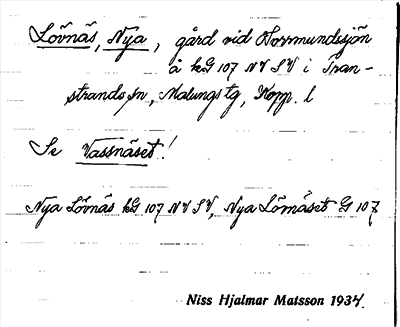 Lövnäs, Nya, gård vid Horrmundssjön
å kG 107 NV SV i Tran-
strands sn, Malungs tg, Kopp. l
Se Vassnäset!
Nya Lövnäs kG 107 NV SV, Nya Lömåset G 107
Niss Hjalmar Matsson 1934.